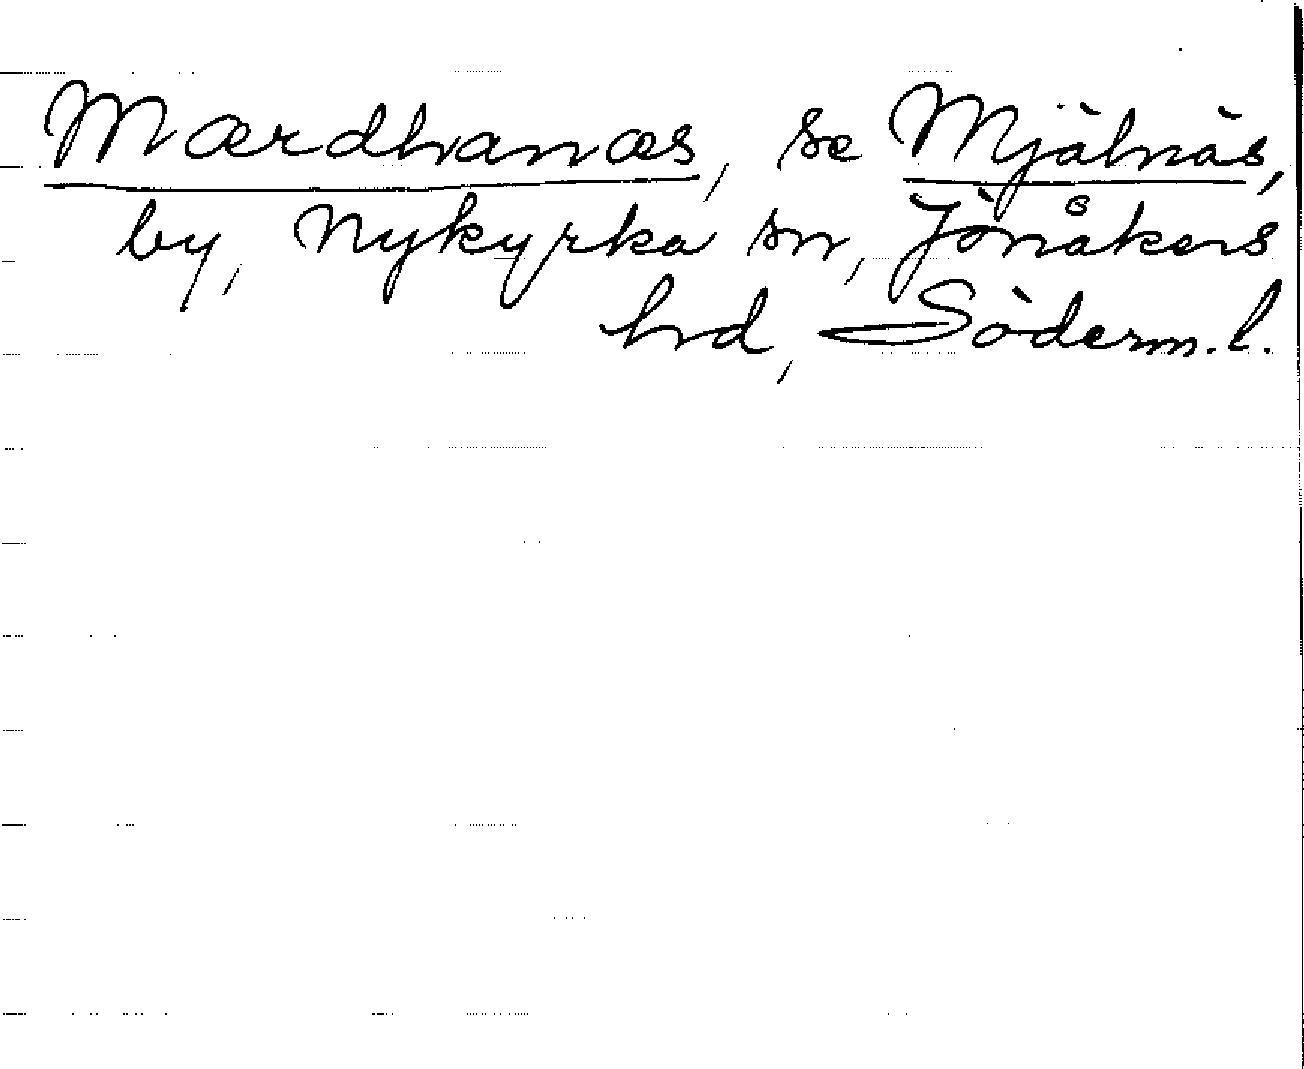 Mærdhanæs, se Mjälnäs,
by, Nykyrka sn, Jönåkers
hd, Söderm. l.